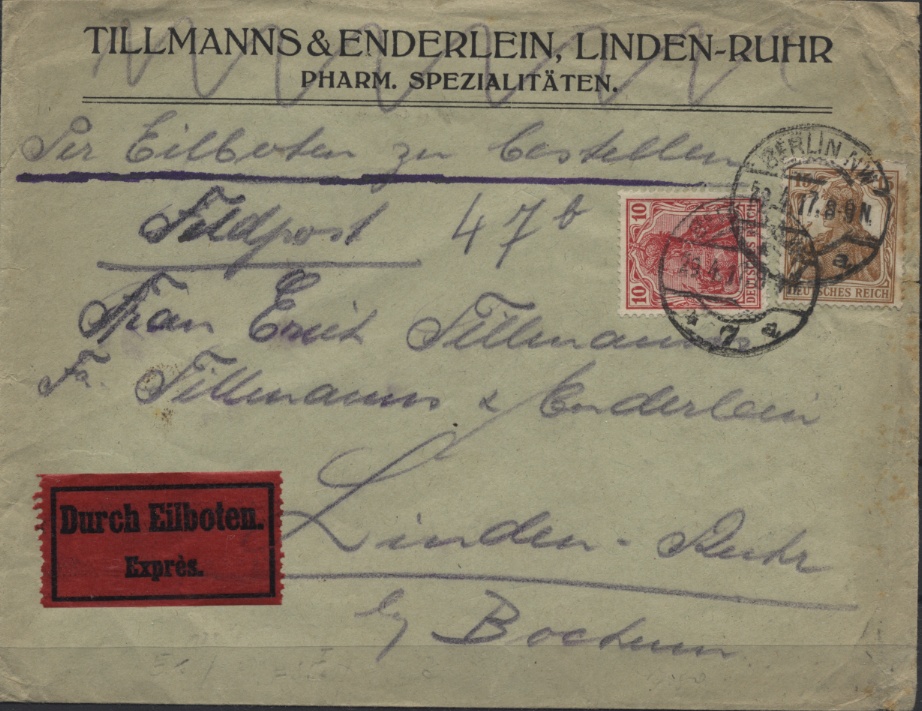 TILLMANNS & ENDERLEIN, LINDEN-RUHR
PHARM. SPEZIALITÄTEN.
Per Eilboten zu bestellen
Feldpost 47b
Frau Erich Tillmanns
Fa. Tillmanns & Enderlein
Linden-Ruhr
b/ Bochum
Durch Eilboten.
Exprès.
10 10
DEUTSCHES REICH
DEUTSCHES REICH
BERLIN NW
17.8-9N.
a
7 a